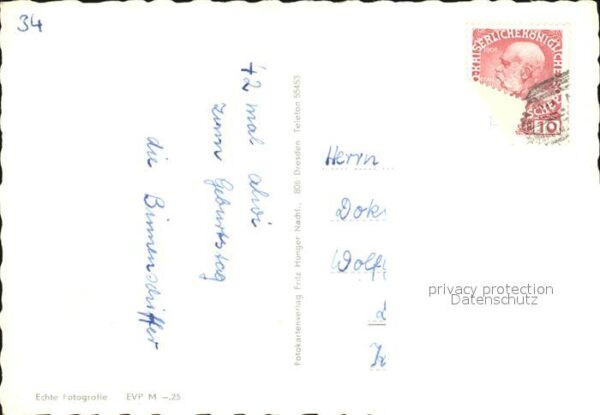 34
KAISERLICHE KÖNIGLICHE
10
42 mal
zum Geburtstag
die Binnenschiffer
Fotokartenverlag Fritz Hunger Nachf., 806 Dresden Telefon 55453
Herrn
Dok
Wolf
privacy protection
Datenschutz
Echte Fotografie EVP M –,25